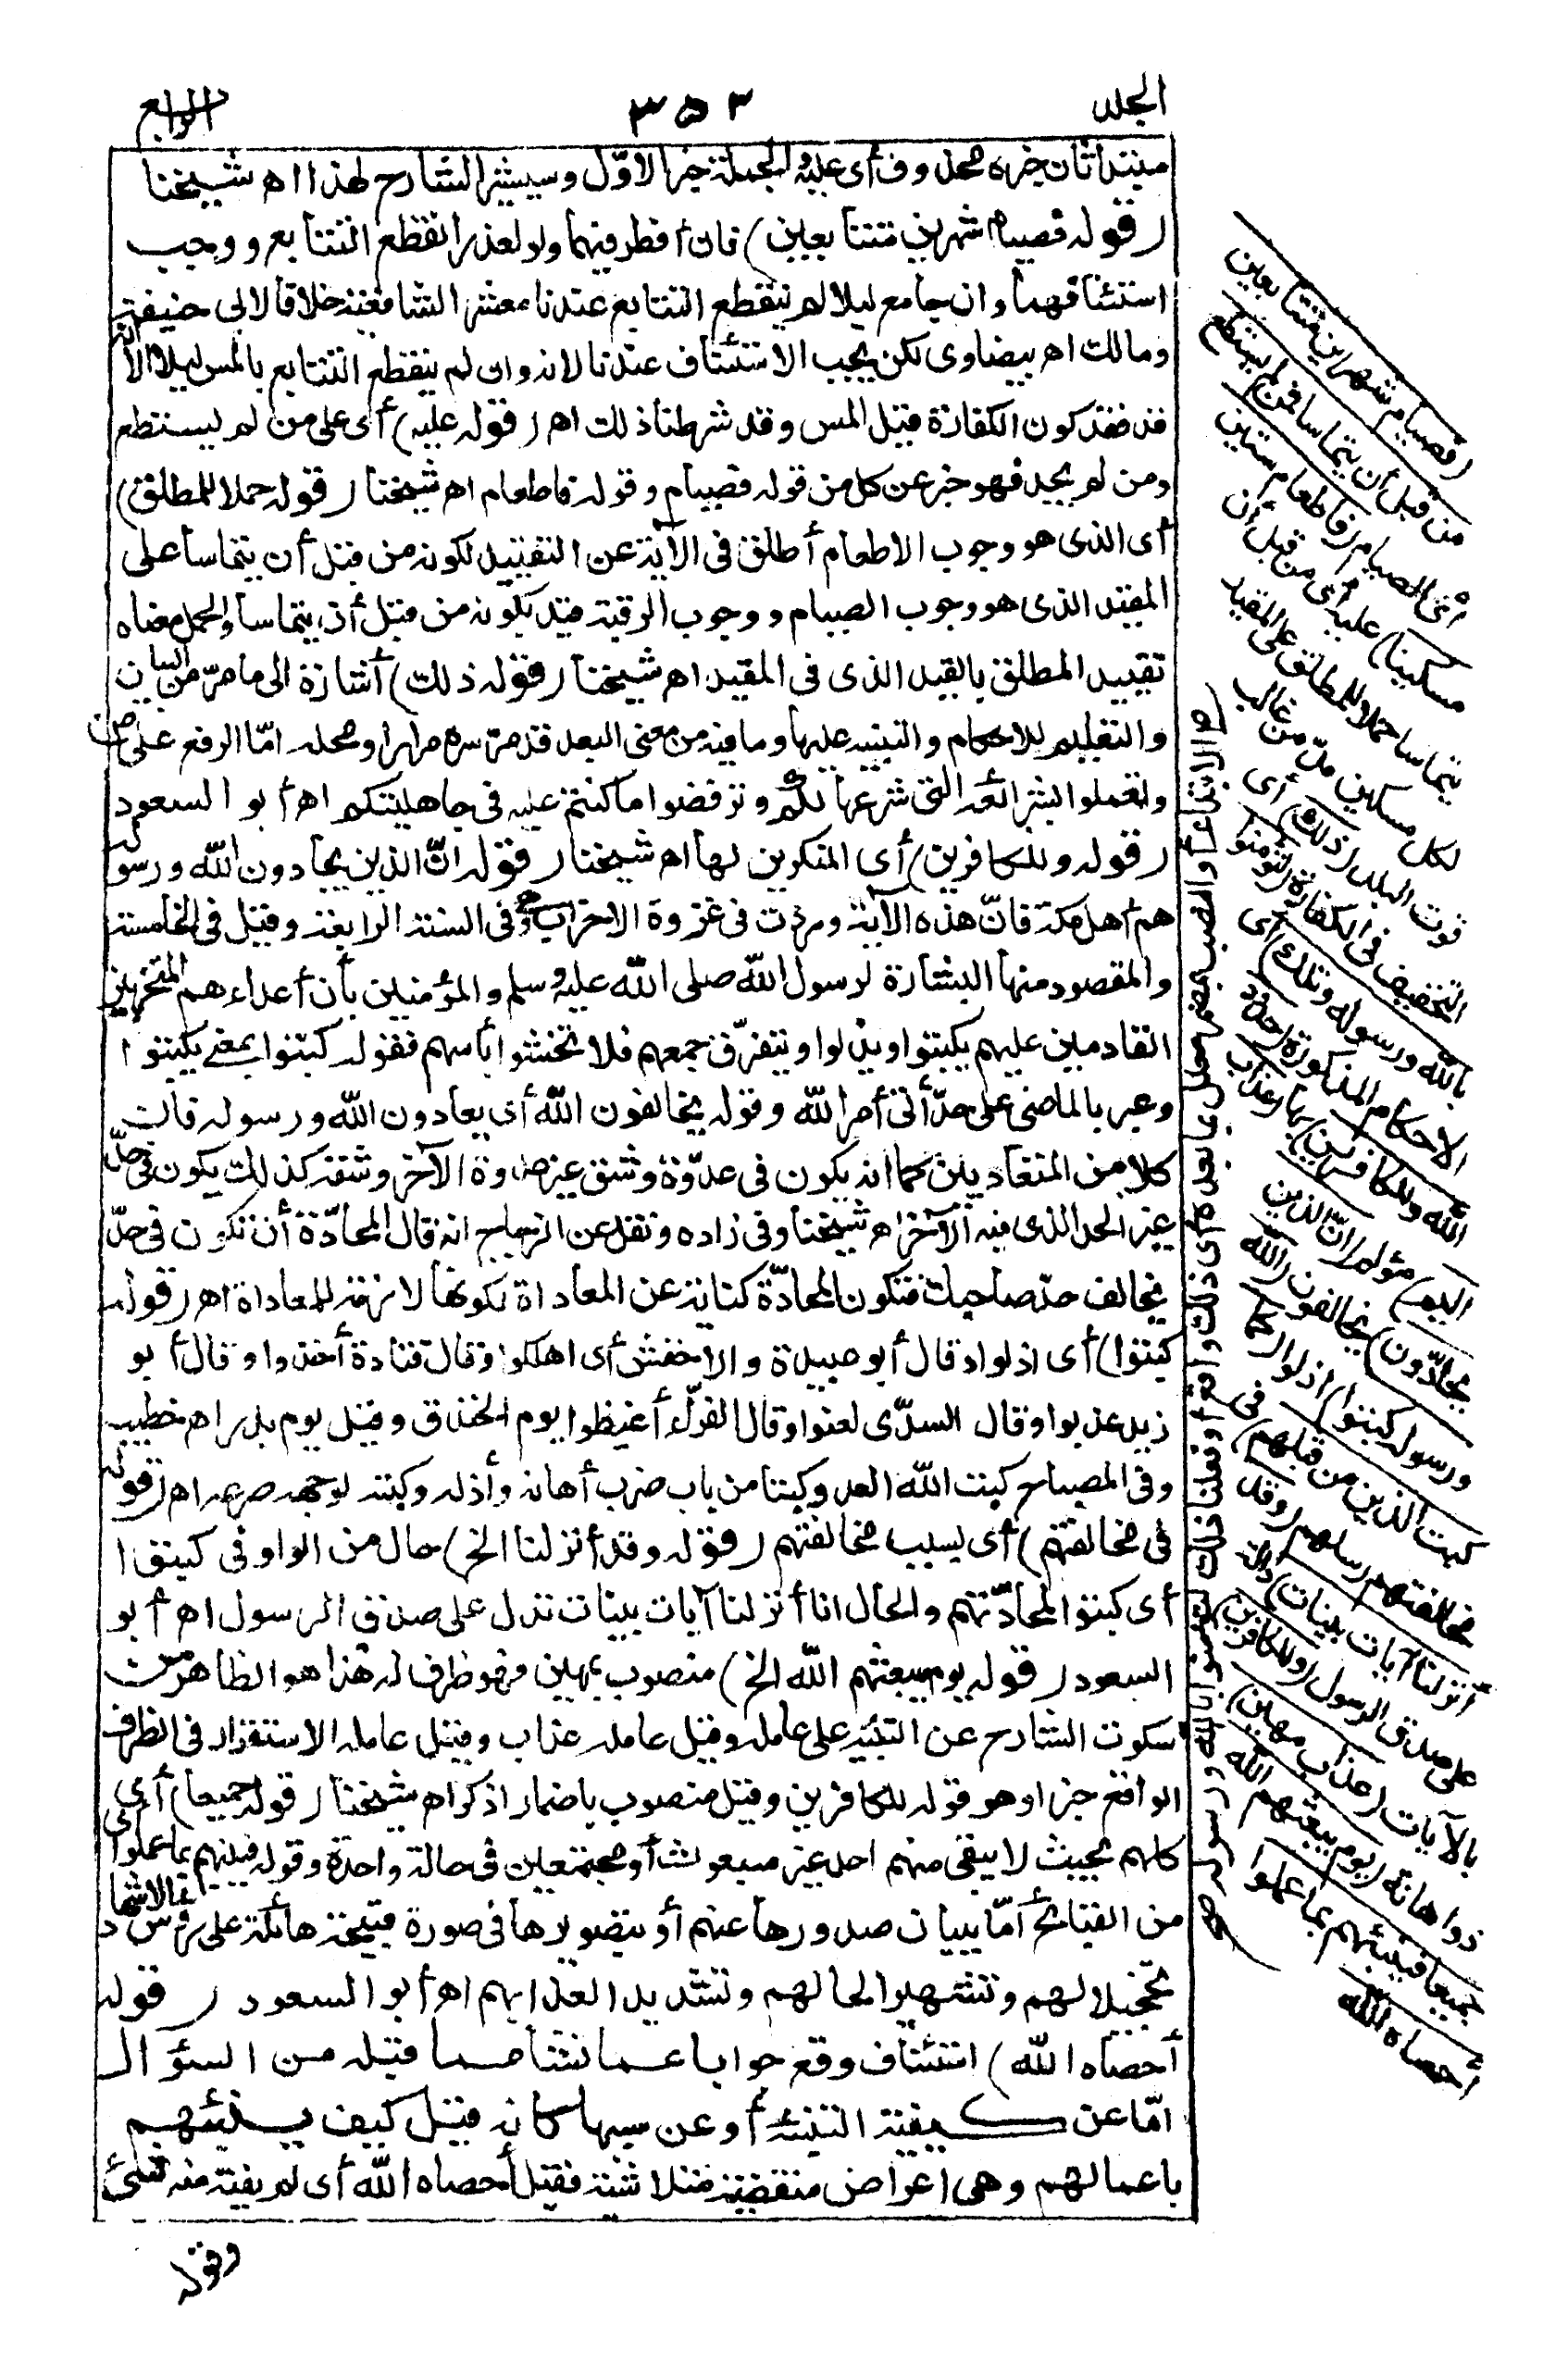 الجلد
٣٥٣
الرابع
مبتدا ثان خبره محذوف أى عليه والجملة خبر الاوّل وسيشير الشارح لهذا اه شيخنا
(قوله فصيام شهرين متتابعين) فان أفطر فيهما ولو لعذر انقطع التتابع ووجب
استئنافهما وان جامع ليلا لم ينقطع التتابع عندنا معشر الشافعية خلافا لابى حنيفة
ومالك اه بيضاوى لكن يجب الاستئناف عندنا لانه وان لم ينقطع التتابع بالمس ليلا الا انه
قد فقد كون الكفارة قبل المس وقد شرطنا ذلك اه (قوله عليه) أى على من لم يستطع
ومن لم يجد فهو خبر عن كل من قوله فصيام وقوله فاطعام اه شيخنا (قوله حملا للمطلق)
أى الذى هو وجوب الاطعام أطلق فى الآية عن التقييد لكونه من قبل أن يتماسا على
المقيد الذى هو وجوب الصيام ووجوب الرقبة قيد بكونه من قبل أن يتماسا والحمل معناه
تقييد المطلق بالقيد الذى فى المقيد اه شيخنا (قوله ذلك) أشارة الى ما مرّ من البيان
والتعليم للاحكام والتنبيه عليها وما فيه من معنى البعد قد مرّ سره مرارا ومحله امّا الرفع على
وتعملوا بشرائعه التى شرعها لكم وترفضوا ما كنتم عليه فى جاهليتكم اه أبو السعود
(قوله وللكافرين) أى المنكرين لها اه شيخنا (قوله انّ الذين يحادون الله ورسوله
هم أهل مكة فانّ هذه الآية وردت فى غزوة الاحزاب وهى فى السنة الرابعة وقيل فى الخامسة
والمقصود منها البشارة لرسول الله صلى الله عليه وسلم والمؤمنين بأن أعداءهم المتحزبين
القادمين عليهم يكبتوا ويذلوا ويتفرّق جمعهم فلا تخشوا بأسهم فقوله كبتوا بمعنى يكبتوا
وعبر بالماضى على حدّ أتى أمر الله وقوله يخالفون الله أى يعادون الله ورسوله فان
كلا من المتعاديين كما انه يكون فى عدوة وشق غير عدوة الآخر وشقه كذلك يكون فى حدّ
غير الحد الذى فيه الآخر اه شيخنا وفى زاده ونقل عن الزجاج انه قال المحادّة أن تكون فى حدّ
يخالف حدّ صاحبك فتكون المحادّة كناية عن المعاداة لكونها لازمة للمعاداة اه (قوله
كبتوا) أى اذلوا وقال أبو عبيدة والاخفش أى اهلكوا وقال قتادة أخذوا وقال أبو
زيد عذبوا وقال السدّى لعنوا وقال الفرّاء أغيظوا يوم الخندق وقيل يوم بدر اه خطيب
وفى المصباح كبت الله العدو كبتا من باب ضرب أهانه وأذله وكبته لوجهه صرعه اه (قوله
فى مخالفتهم) أى بسبب مخالفتهم (قوله وقد أنزلنا الخ) حال من الواو فى كبتوا
أى كبتوا لمحادّتهم والحال انا أنزلنا آيات بينات تدل على صدق الرسول اه أبو
السعود (قوله يوم يبعثهم الله الخ) منصوب بمهين فهو ظرف له هذا هو الظاهر من
سكوت الشارح عن التنبيه على عامله وقيل عامله عذاب وقيل عامله الاستقرار فى الظرف
الواقع خبرا وهو قوله للكافرين وقيل منصوب باضمار اذكر اه شيخنا (قوله جميعا) أى
كلهم بحيث لا يبقى منهم احد غير مبعوث أو مجتمعين فى حالة واحدة وقوله فينبئهم بما عملوا أى
من القبائح امّا ببيان صدورها عنهم أو بتصويرها فى صورة قبيحة هائلة على رؤس الاشهاد
تخجيلا لهم وتشهيرا لحالهم وتشديدا لعذابهم اه أبو السعود (قوله
أحصاه الله) استئناف وقع جوابا عما نشأ مما قبله من السؤال
امّا عن كيفية التنبئة أو عن سببها كانه قيل كيف ينبئهم
باعمالهم وهى اعراض منقضية متلاشية فقيل أحصاه الله أى لم يفته منه شئ
وقوله
(فصيام شهرين متتابعين
من قبل أن يتماسا فمن لم يستطع
أى الصيام (فاطعام ستين
مسكينا) عليه أى من قبل أن
يتماسا حملا للمطلق على المقيد
لكل مسكين مدّ من غالب
قوت البلد (ذلك) أى
التخفيف فى الكفارة (لتؤمنوا
بالله ورسوله وتلك) أى
الاحكام المذكورة (حدود
الله وللكافرين) بها (عذاب
اليم) مؤلم (انّ الذين
يحادّون) يخالفون (الله
ورسوله كبتوا) اذلوا (كما
كبت الذين من قبلهم) فى
مخالفتهم رسلهم (وقد
أنزلنا آيات بينات) دالة
على صدق الرسول (وللكافرين)
بالآيات (عذاب مهين)
ذو اهانة (يوم يبعثهم الله
جميعا فينبئهم بما عملوا
أحصاه الله
الابتداء أو النصب بمضمر معلل بما بعده أى ذلك واقع أو فعلنا ذلك لتؤمنوا بالله ورسوله